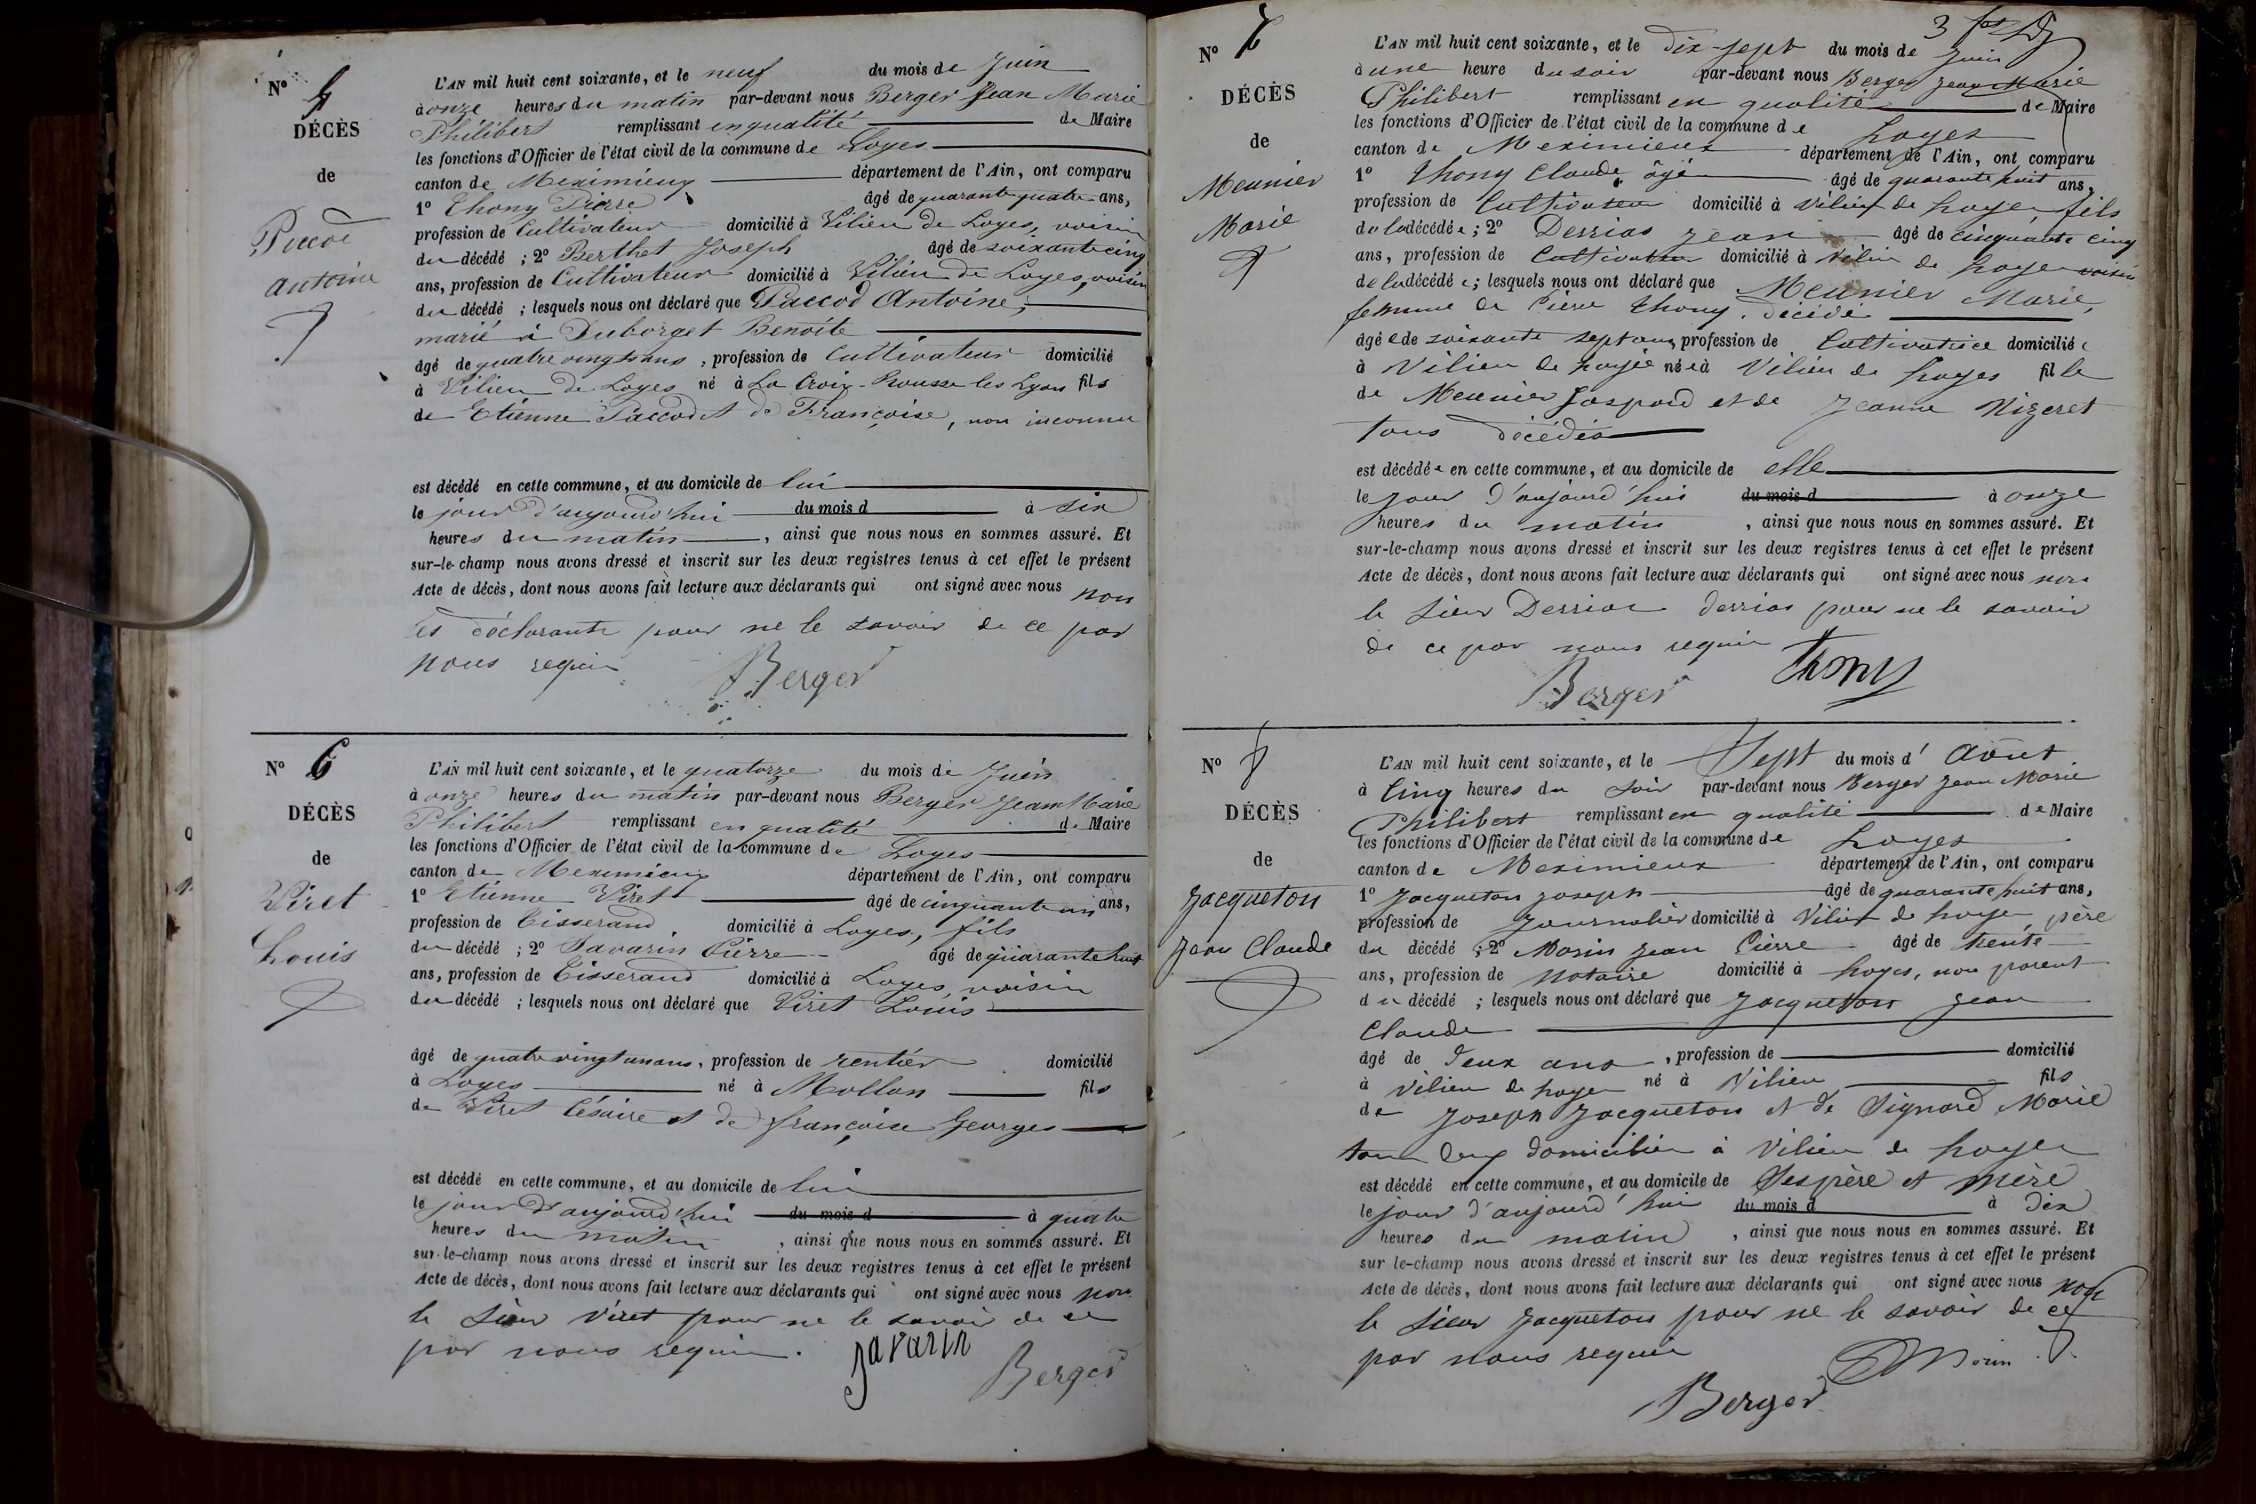 Nº 5
DÉCÈS
de
Paccod
Antoine
L'AN mil huit cent soixante, et le neuf du mois de Juin
à onze heures du matin par-devant nous Berger Jean Marie
Philibert remplissant en qualité de Maire
les fonctions d'Officier de l'état civil de la commune de Loyes
canton de Meximieux département de l'Ain, ont comparu
1º Thony Pierre âgé de quarante quatre ans,
profession de Cultivateur domicilié à Vilieu de Loyes, voisin
du décédé ; 2º Berthet Joseph âgé de soixante cinq
ans, profession de Cultivateur domicilié à Vilieu de Loyes, voisin
du décédé ; lesquels nous ont déclaré que Paccod Antoine,
marié à Duborget Benoîte
âgé de quatre vingts ans, profession de Cultivateur domicilié
à Vilieu de Loyes né à La Croix-Rousse les Lyon fils
de Etienne Paccod et de Françoise, non inconnu
est décédé en cette commune, et au domicile de lui
le jour d'aujourd'hui du mois d à six
heures du matin, ainsi que nous nous en sommes assuré. Et
sur-le-champ nous avons dressé et inscrit sur les deux registres tenus à cet effet le présent
Acte de décès, dont nous avons fait lecture aux déclarants qui ont signé avec nous non
les déclarants pour ne le savoir de ce par
nous requis
Berger
Nº 6
DÉCÈS
de
Viret
Louis
L'AN mil huit cent soixante, et le quatorze du mois de Juin
à onze heures du matin par-devant nous Berger Jean Marie
Philibert remplissant en qualité de Maire
les fonctions d'Officier de l'état civil de la commune de Loyes
canton de Meximieux département de l'Ain, ont comparu
1º Etienne Viret âgé de cinquante un ans,
profession de Tisserand domicilié à Loyes, fils
du décédé ; 2º Savarin Pierre âgé de quarante huit
ans, profession de Tisserand domicilié à Loyes, voisin
du décédé ; lesquels nous ont déclaré que Viret Louis
âgé de quatre vingt un ans, profession de rentier domicilié
à Loyes né à Mollon fils
de Viret Césaire et de françoise Georges
est décédé en cette commune, et au domicile de lui
le jour d'aujourd'hui du mois d à quatre
heures du matin, ainsi que nous nous en sommes assuré. Et
sur-le-champ nous avons dressé et inscrit sur les deux registres tenus à cet effet le présent
Acte de décès, dont nous avons fait lecture aux déclarants qui ont signé avec nous non
le sieur Viret pour ne le savoir de ce
par nous requis.
Savarin
Berger
Nº 7
DÉCÈS
de
Meunier
Marie
L'AN mil huit cent soixante, et le dix-sept du mois de Juin
à une heure du soir par-devant nous Berger Jean Marie
Philibert remplissant en qualité de Maire
les fonctions d'Officier de l'état civil de la commune de Loyes
canton de Meximieux département de l'Ain, ont comparu
1º Thony Claude âgé âgé de quarante huit ans,
profession de Cultivateur domicilié à Vilieu de Loyes, fils
de la décédée ; 2º Derrias Jean âgé de cinquante cinq
ans, profession de Cultivateur domicilié à Vilieu de Loyes voisin
de la décédée ; lesquels nous ont déclaré que Meunier Marie,
femme de Pierre Thony, décédé
âgée de soixante sept ans, profession de Cultivatrice domiciliée
à Vilieu de Loyes née à Vilieu de Loyes fille
de Meunier Gaspard et de Jeanne Nizeret
tous décédés
est décédée en cette commune, et au domicile de elle
le jour d'aujourd'hui du mois d à onze
heures du matin, ainsi que nous nous en sommes assuré. Et
sur-le-champ nous avons dressé et inscrit sur les deux registres tenus à cet effet le présent
Acte de décès, dont nous avons fait lecture aux déclarants qui ont signé avec nous non
le sieur Derrias derrias pour ne le savoir
de ce par nous requis
Thony
Berger
Nº 8
DÉCÈS
de
Jacqueton
Jean Claude
L'AN mil huit cent soixante, et le Sept du mois d'Août
à Cinq heures du soir par-devant nous Berger Jean Marie
Philibert remplissant en qualité de Maire
les fonctions d'Officier de l'état civil de la commune de Loyes
canton de Meximieux département de l'Ain, ont comparu
1º Jacqueton Joseph âgé de quarante huit ans,
profession de Journalier domicilié à Vilieu de Loyes père
du décédé ; 2º Morin Jean Pierre âgé de trente
ans, profession de Notaire domicilié à Loyes, non parent
du décédé ; lesquels nous ont déclaré que Jacqueton Jean
Claude
âgé de deux ans, profession de domicilié
à Vilieu de Loyes né à Vilieu fils
de Joseph Jacqueton et de Signard Marie
tous deux domiciliés à Vilieu de Loyes
est décédé en cette commune, et au domicile de Ses père et mère
le jour d'aujourd'hui du mois d à dix
heures du matin, ainsi que nous nous en sommes assuré. Et
sur le-champ nous avons dressé et inscrit sur les deux registres tenus à cet effet le présent
Acte de décès, dont nous avons fait lecture aux déclarants qui ont signé avec nous non
le sieur Jacqueton pour ne le savoir de ce
par nous requis
Morin
Berger